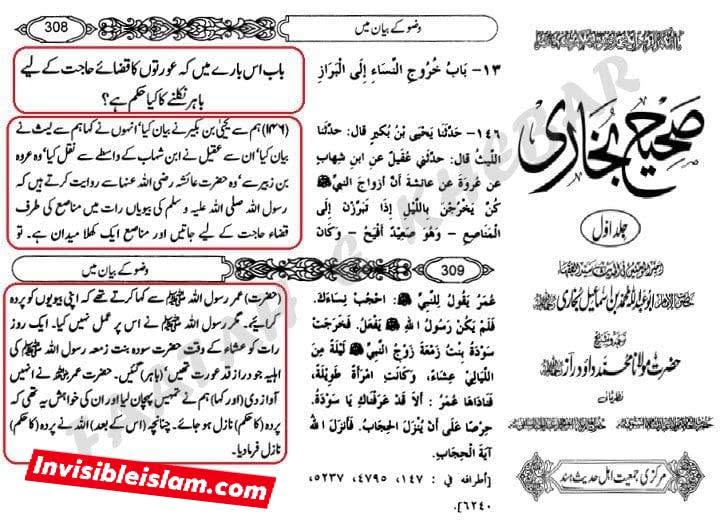 308
وضو کے بیان میں
باب اس بارے میں کہ عورتوں کا قضائے حاجت کے لیے
باہر نکلنے کا کیا حکم ہے؟
١٣- بَابُ خُرُوجِ النِّسَاءِ إِلَى الْبَرَازِ
(۱۴۶) ہم سے یحییٰ بن بکیر نے بیان کیا' انہوں نے کہا ہم سے لیث نے
بیان کیا' ان سے عقیل نے ابن شہاب کے واسطے سے نقل کیا' وہ عروہ
بن زبیر سے' وہ حضرت عائشہ رضی اللہ عنہا سے روایت کرتے ہیں کہ
رسول اللہ صلی اللہ علیہ و سلم کی بیویاں رات میں مناصع کی طرف
قضاء حاجت کے لیے جاتیں اور مناصع ایک کھلا میدان ہے۔ تو
١٤٦- حَدَّثَنَا يَحْيَى بْنُ بُكَيْرٍ قَالَ: حَدَّثَنَا
اللَّيْثُ قَالَ: حَدَّثَنِي عُقَيْلٌ عَنِ ابْنِ شِهَابٍ
عَنْ عُرْوَةَ عَنْ عَائِشَةَ أَنَّ أَزْوَاجَ النَّبِيِّ ﷺ
كُنَّ يَخْرُجْنَ بِاللَّيْلِ إِذَا تَبَرَّزْنَ إِلَى
الْمَنَاصِعِ - وَهُوَ صَعِيدٌ أَفْيَحُ - وَكَانَ
وضو کے بیان میں
309
(حضرت) عمر رسول اللہ ﷺ سے کہا کرتے تھے کہ اپنی بیویوں کو پردہ
کرائیے۔ مگر رسول اللہ ﷺ نے اس پر عمل نہیں کیا۔ ایک روز
رات کو عشاء کے وقت حضرت سودہ بنت زمعہ رسول اللہ ﷺ کی
اہلیہ جو دراز قد عورت تھیں' (باہر) گئیں۔ حضرت عمر نے انہیں
آواز دی (اور کہا) ہم نے تمہیں پہچان لیا اور ان کی خواہش یہ تھی کہ
پردہ (کا حکم) نازل ہو جائے۔ چنانچہ (اس کے بعد) اللہ نے پردہ (کا حکم)
نازل فرما دیا۔
عُمَرُ يَقُولُ لِلنَّبِيِّ ﷺ: احْجُبْ نِسَاءَكَ.
فَلَمْ يَكُنْ رَسُولُ اللهِ ﷺ يَفْعَلُ. فَخَرَجَتْ
سَوْدَةُ بِنْتُ زَمْعَةَ زَوْجُ النَّبِيِّ ﷺ لَيْلَةً مِنَ
اللَّيَالِي عِشَاءً، وَكَانَتِ امْرَأَةً طَوِيلَةً،
فَنَادَاهَا عُمَرُ : أَلاَ قَدْ عَرَفْنَاكِ يَا سَوْدَةُ.
حِرْصًا عَلَى أَنْ يُنْزَلَ الْحِجَابُ. فَأَنْزَلَ اللهُ
آيَةَ الْحِجَابِ.
[أطرافه في : ١٤٧، ٤٧٩٥، ٥٢٣٧،
٦٢٤٠].
صحیح بخاری
جلد اوّل
حضرت مولانا محمد داؤد راز
نظر ثانی
مرکزی جمعیت اہل حدیث ہند
Invisibleislam.com